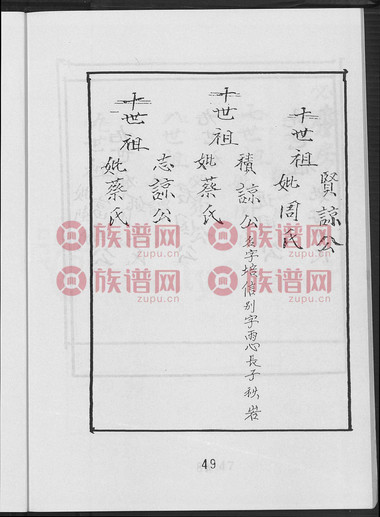 賢諒公
十世祖
妣周氏
積諒公名字
長子
十世祖
妣蔡氏
志諒公
十世祖
妣蔡氏
族谱网 族谱网 族谱网
zupu.cn zupu.cn zupu.cn
族谱网 族谱网 族谱网
zupu.cn zupu.cn zupu.cn
49